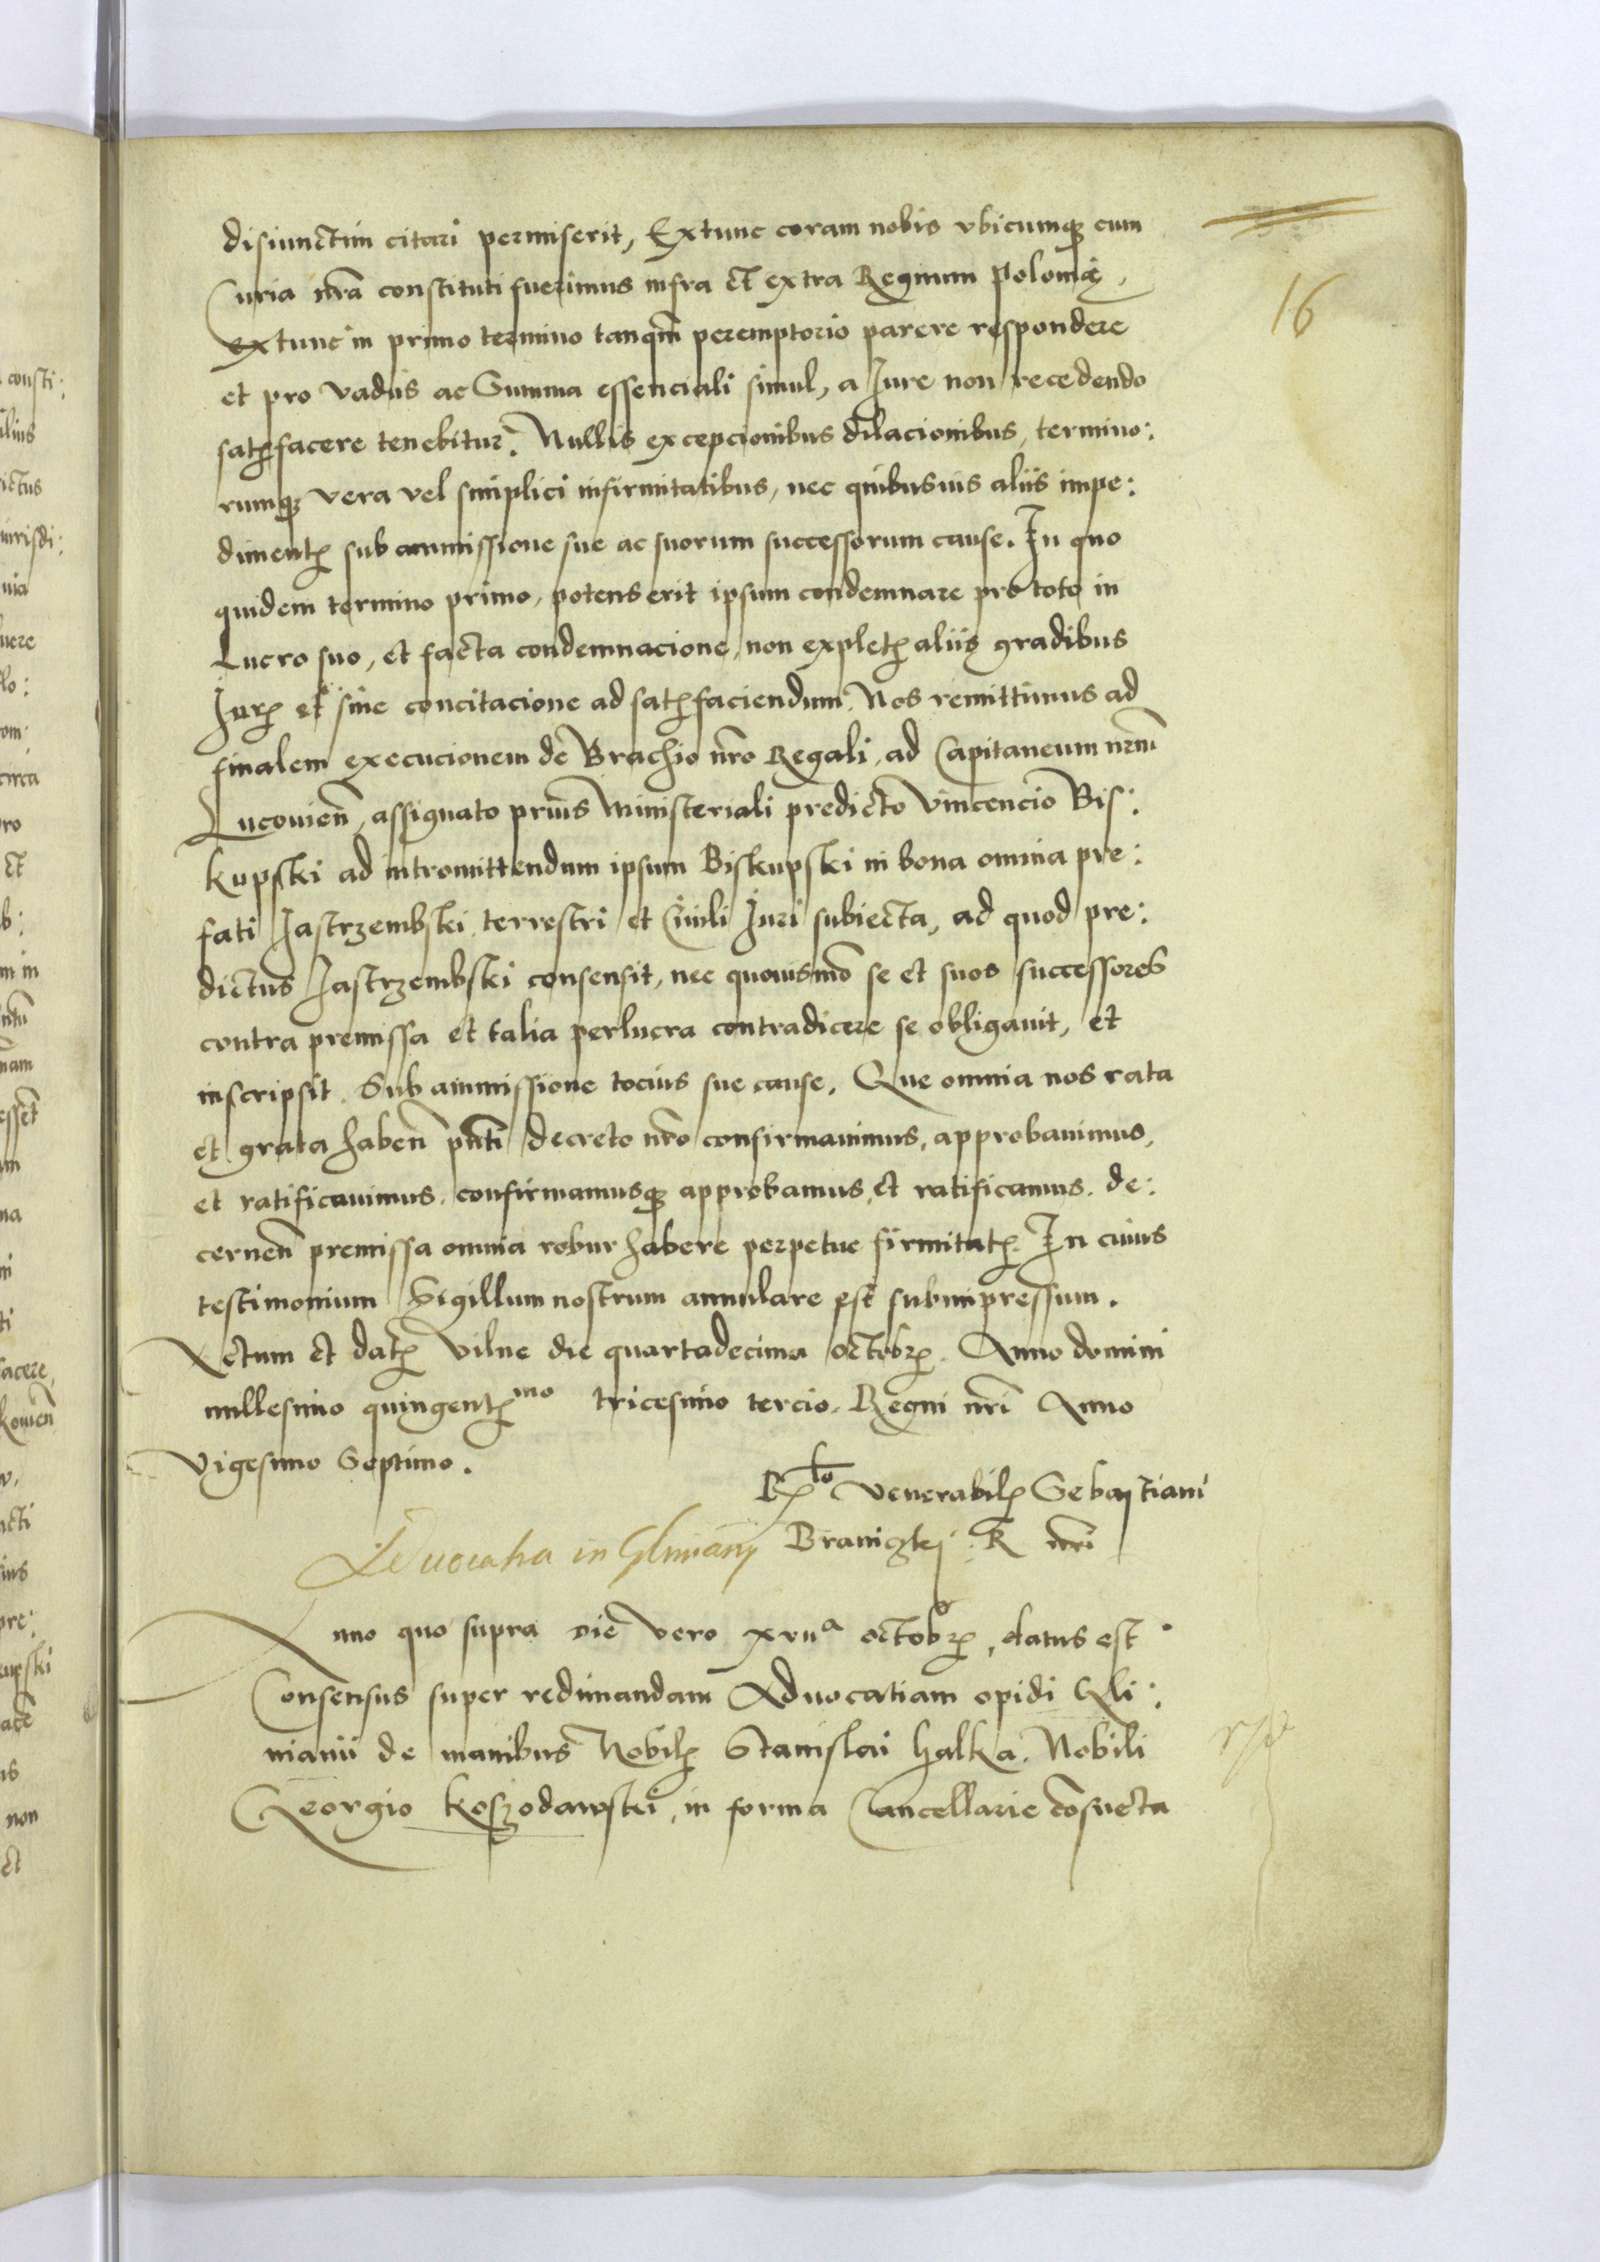 16
disiunctim citari permiserit, Extunc coram nobis vbicumq cum
Curia nra constituti fuerimus infra et extra Regnum Polonię,
extunc in primo termino tanqm peremptorio parere respondere
et pro vadiis ac Summa essenciali simul, a Iure non recedendo
satisfacere tenebitur. Nullis excepcionibus dilacionibus, termino:
rumq vera vel simplici infirmitatibus, nec quibusuis aliis impe:
dimentis sub ammissione sue ac suorum successorum cause. In quo
quidem termino primo, potens erit ipsum condemnare pro toto in
Lucro suo, et facta condemnacione, non expletis aliis gradibus
Juris et sine concitacione ad satisfaciendum. Nos remittimus ad
finalem execucionem de Brachio nro Regali, ad Capitaneum nrm
Lucouien, assignato prius Ministeriali predicto Vincencio Bis:
kupski ad intromittendum ipsum Biskupski in bona omnia pre:
fati Jastrzembski terrestri et Ciuili Juri subiecta, ad quod pre:
dictus Jastrzembski consensit, nec quouismo se et suos successores
contra premissa et talia perlucra contradicere se obligauit, et
inscripsit. Sub ammissione tocius sue cause. Que omnia nos rata
et grata haben pnti decreto nro confirmauimus, approbauimus,
et ratificauimus. confirmamusq approbamus, et ratificamus. de:
cernen premissa omnia robur habere perpetue firmitatis. In cuius
testimonium Sigillum nostrum annulare est subimpressum.
Actum et datis Vilne die quartadecima octobris. Anno domini
millesimo quingentis mo tricesimo tercio. Regni nri Anno
vigesimo Septimo.
Rto venerabilis Sebastiani
Branigkj R nri
Aduocatia in Gliniany
Anno quo supra die vero xvii a octobris, datus est
Consensus super redimandam Aduocatiam opidi Gli:
nianii de manibus Nobilis Stanislai halka. Nobili
Georgio koszodawski, in forma Cancellarie cosueta